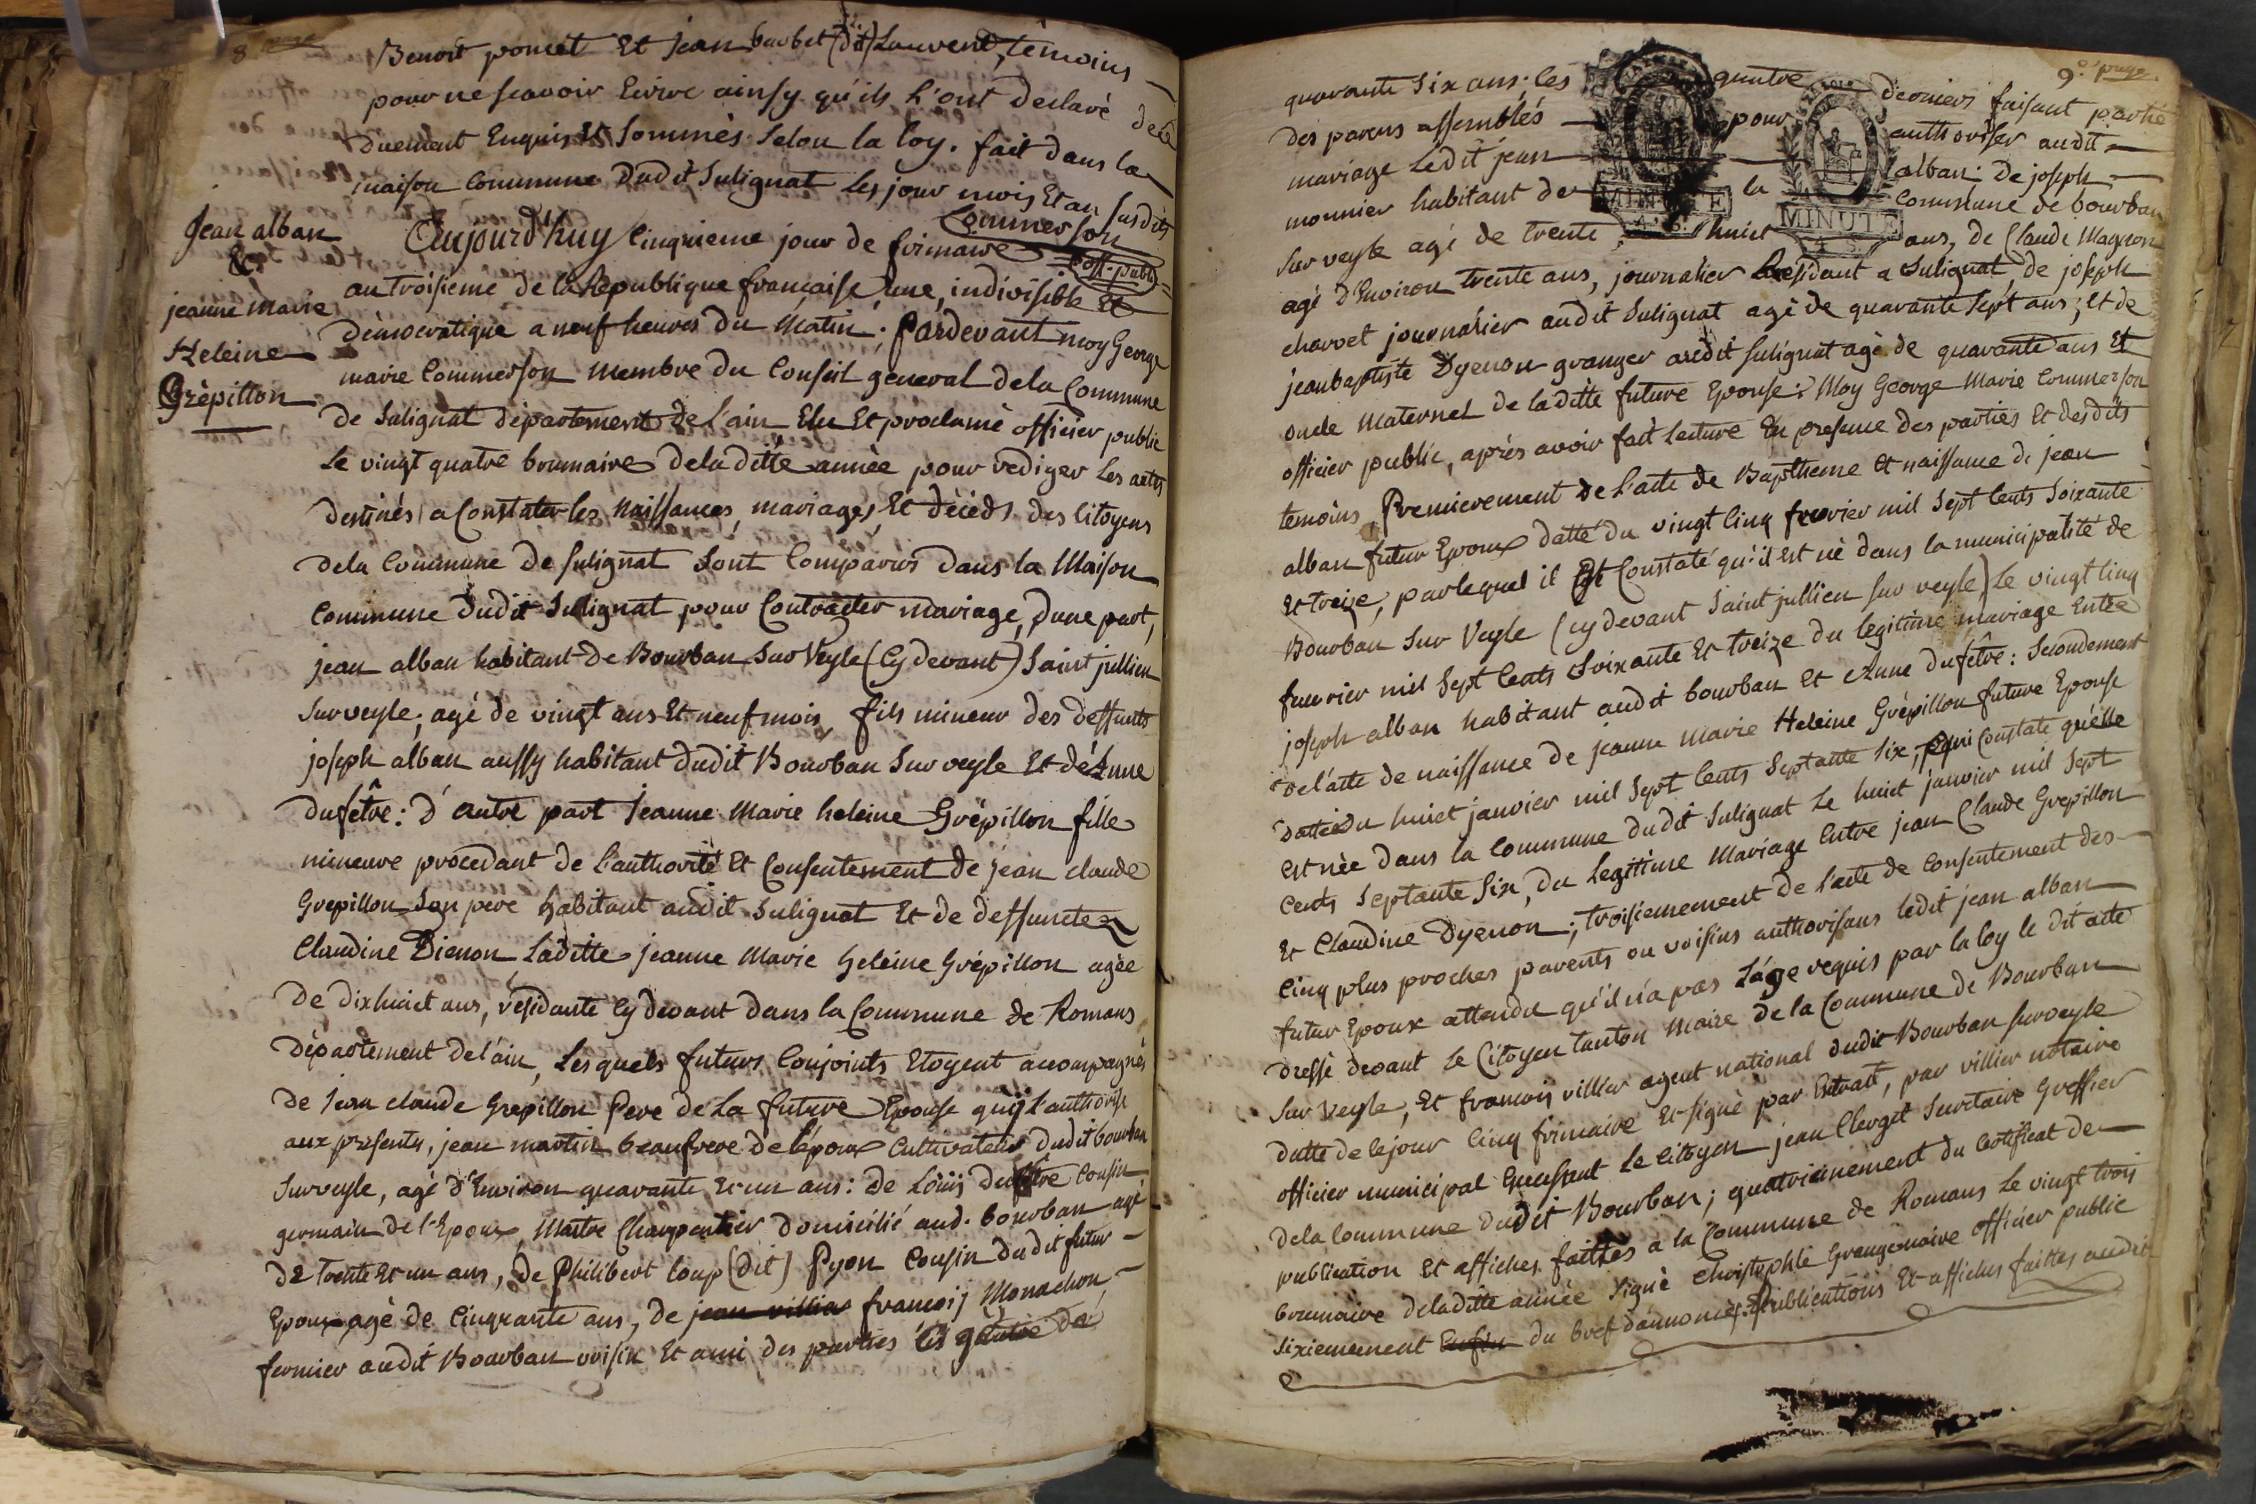 8e page
Benoit poncet Et jean barbet (dit) Laurent, témoins
pour ne scavoir Ecrire ainsy qu'ils L'ont declaré de ce
duement Enquis Et Sommés Selon la loy. fait dans la
maison Commune dudit Sulignat les jour mois Et an susdits
Commerson
off. publ.
Jean alban
&
jeanne marie
Heleine
Grépillon
Aujourd'huy Cinquieme jour de frimaire
an troisieme de la Republique francaise, une, indivisible Et
démocratique a neuf heures du Matin; Pardevant moy George
marie Commerson membre du Conseil general de la Commune
de Sulignat département de L'ain Elu Et proclamé officier public
Le vingt quatre brumaire de la ditte année pour rediger Les actes
destinés a Constater les Naissances, mariages, Et décéds des Citoyens
de la Commune de Sulignat Sont Comparus dans la Maison
Commune dudit Sulignat pour Contracter mariage, d'une part,
jean alban habitant de Bourban Sur Veyle (Cy devant) Saint jullien
Sur veyle; agé de vingt ans Et neuf mois, fils mineur des deffunts
joseph alban aussy habitant dudit Bourban Sur veyle Et de Anne
dufêtre: d'autre part Jeanne Marie heleine Grépillon fille
mineure procedant de L'authorité Et Consentement de jean claude
Grepillon Son pere habitant audit Sulignat Et de deffuncte
Claudine Dienon Laditte jeanne Marie heleine Grépillon agée
de dixhuict ans, residante Cy devant dans la Commune de Romans
Département de l'ain, Lesquels futurs Conjoints Etoyent accompagnés
de Jean claude Grepillon Pere de La future Epouse qui L'authorise
aux presents, jean martin beaufrere de l'époux Cultivateur dudit bourban
Sur veyle, agé d'Environ quarante et un ans: de Loüis dufêtre Cousin
germain de l'Epoux, Maitre Charpentier domicilié aud. bourban agé
de trente Et un ans, de Philibert loup (dit) Pyon Cousin dudit futur
Epoux agé de Cinquante ans, de jean villier francois Monachon,
fermier audit Bourban voisin Et ami des parties les quatre de
9e page
quarante Six ans; les quatre derniers faisant partie
des parens assemblés pour authoriser audit
mariage Ledit jean alban: de joseph
monnier habitant de la Commune de bourban
Sur veyle agé de trente huict ans, de Claude Magnon
MINUTE
MINUTE
agé d'Environ trente ans, journalier Residant a Sulignat, de joseph
charvet journalier audit Sulignat agé de quarante sept ans; Et de
jeanbaptiste Dyenon granger audit sulignat agé de quarante ans Et
oncle Maternel de laditte future Epouse: Moy George Marie Commerson
officier public, aprés avoir fait Lecture En presence des parties Et desdits
temoins, Premierement de L'acte de Baptheme Et naissance de jean
alban futur Epoux datté du vingt Cinq fevrier mil Sept Cents Soixante
Et treize, par lequel il Est Constaté qu'il Est né dans la municipalité de
Bourban Sur Veyle (cy devant Saint jullien sur veyle) Le vingt Cinq
fevrier mil Sept Cents Soixante Et treize du legitime mariage Entre
joseph alban habitant audit bourban Et Anne dufêtre: Secondement
de l'acte de naissance de jeanne Marie Heleine Grépillon future Epouse
datté du huict janvier mil Sept Cents Septante Six, qui Constate qu'elle
Est née dans la Commune dudit Sulignat Le huict janvier mil Sept
Cents Septante Six, du Legitime Mariage Entre jean Claude Grepillon
Et Claudine Dyenon; troisiemement de L'acte de Consentement des
Cinq plus proches parents ou voisins authorisans ledit jean alban
futur Epoux attendu qu'il n'a pas L'age requis par la loy le dit acte
dressé devant Le Citoyen tanton Maire de la Commune de Bourban
Sur Veyle, Et francois villier agent national dudit Bourban sur veyle
datté de le jour Cinq frimaire Et signé par Extrait, par villier notaire
officier municipal Le Citoyen jean Clerget Secretaire Greffier
de la Commune dudit Bourban; quatriemement du Certificat de
publication Et affiches faittes a la Commune de Romans Le vingt trois
brumaire de laditte année Signé Christophle Grangemaire officier public
Sixiemement Enfin du bref d'annonces. Publications Et affiches faittes audit